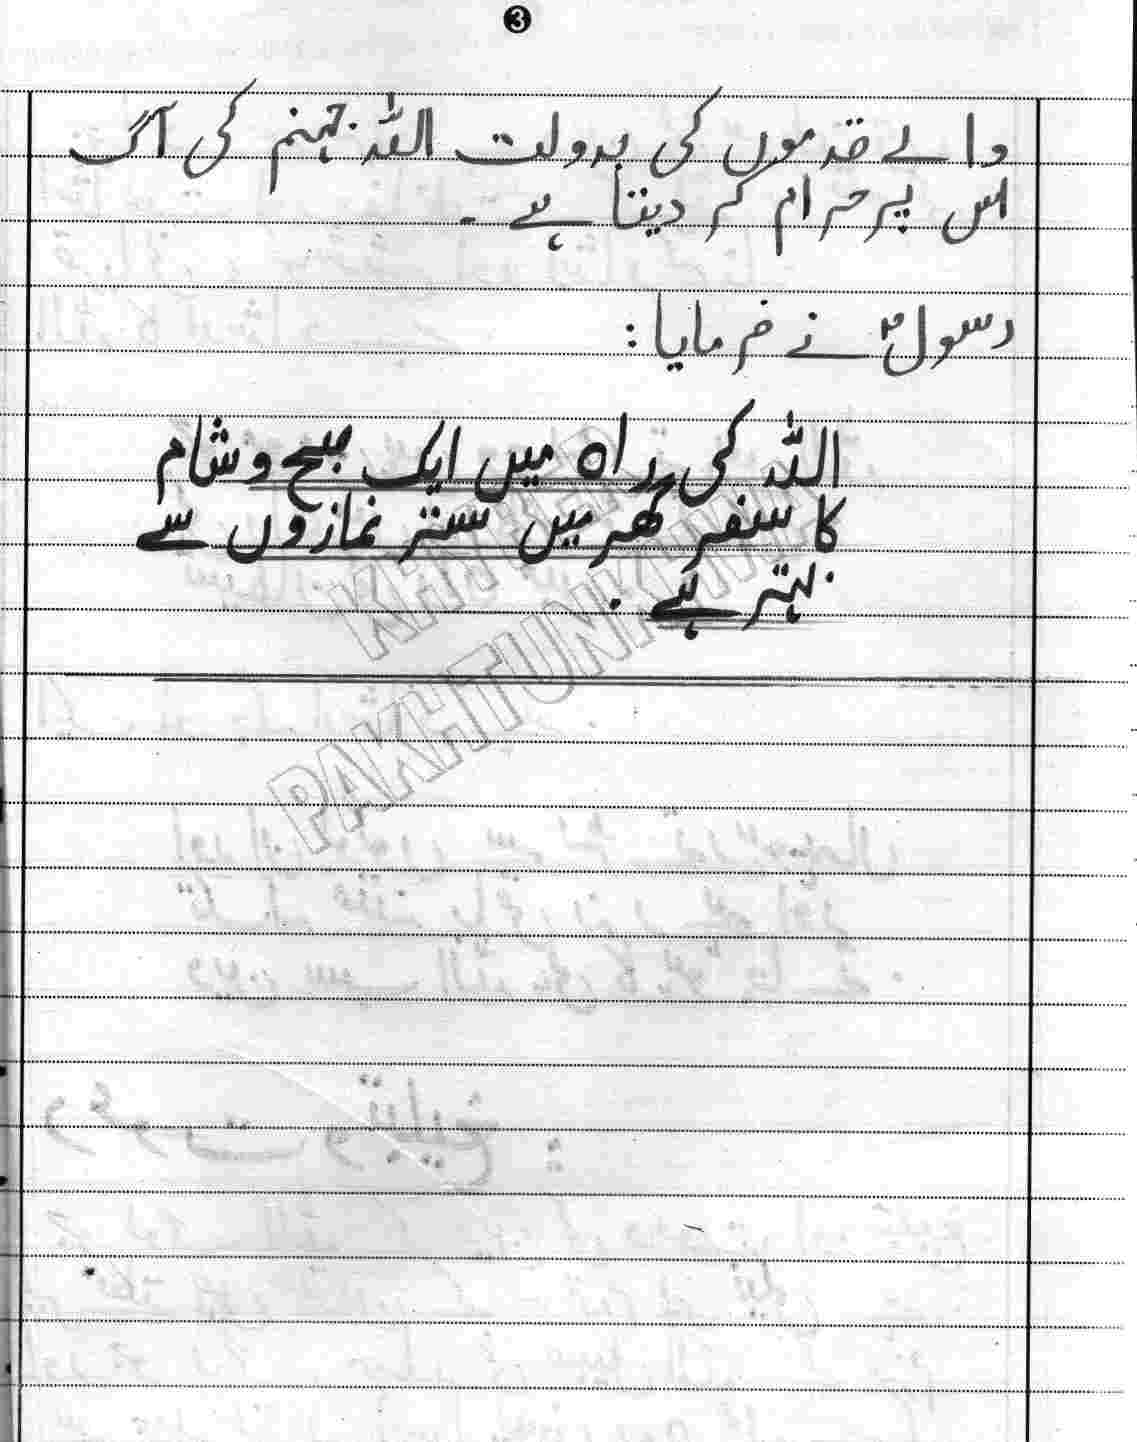 3
والے قدموں کی بدولت اللہ جہنم کی آگ
اس پر حرام کر دیتا ہے ۔
رسولؐ نے فرمایا :
اللہ کی راہ میں ایک صبح و شام
کا سفر گھر میں ستر نمازوں سے
بہتر ہے ۔
KHYBER
PAKHTUNKHWA